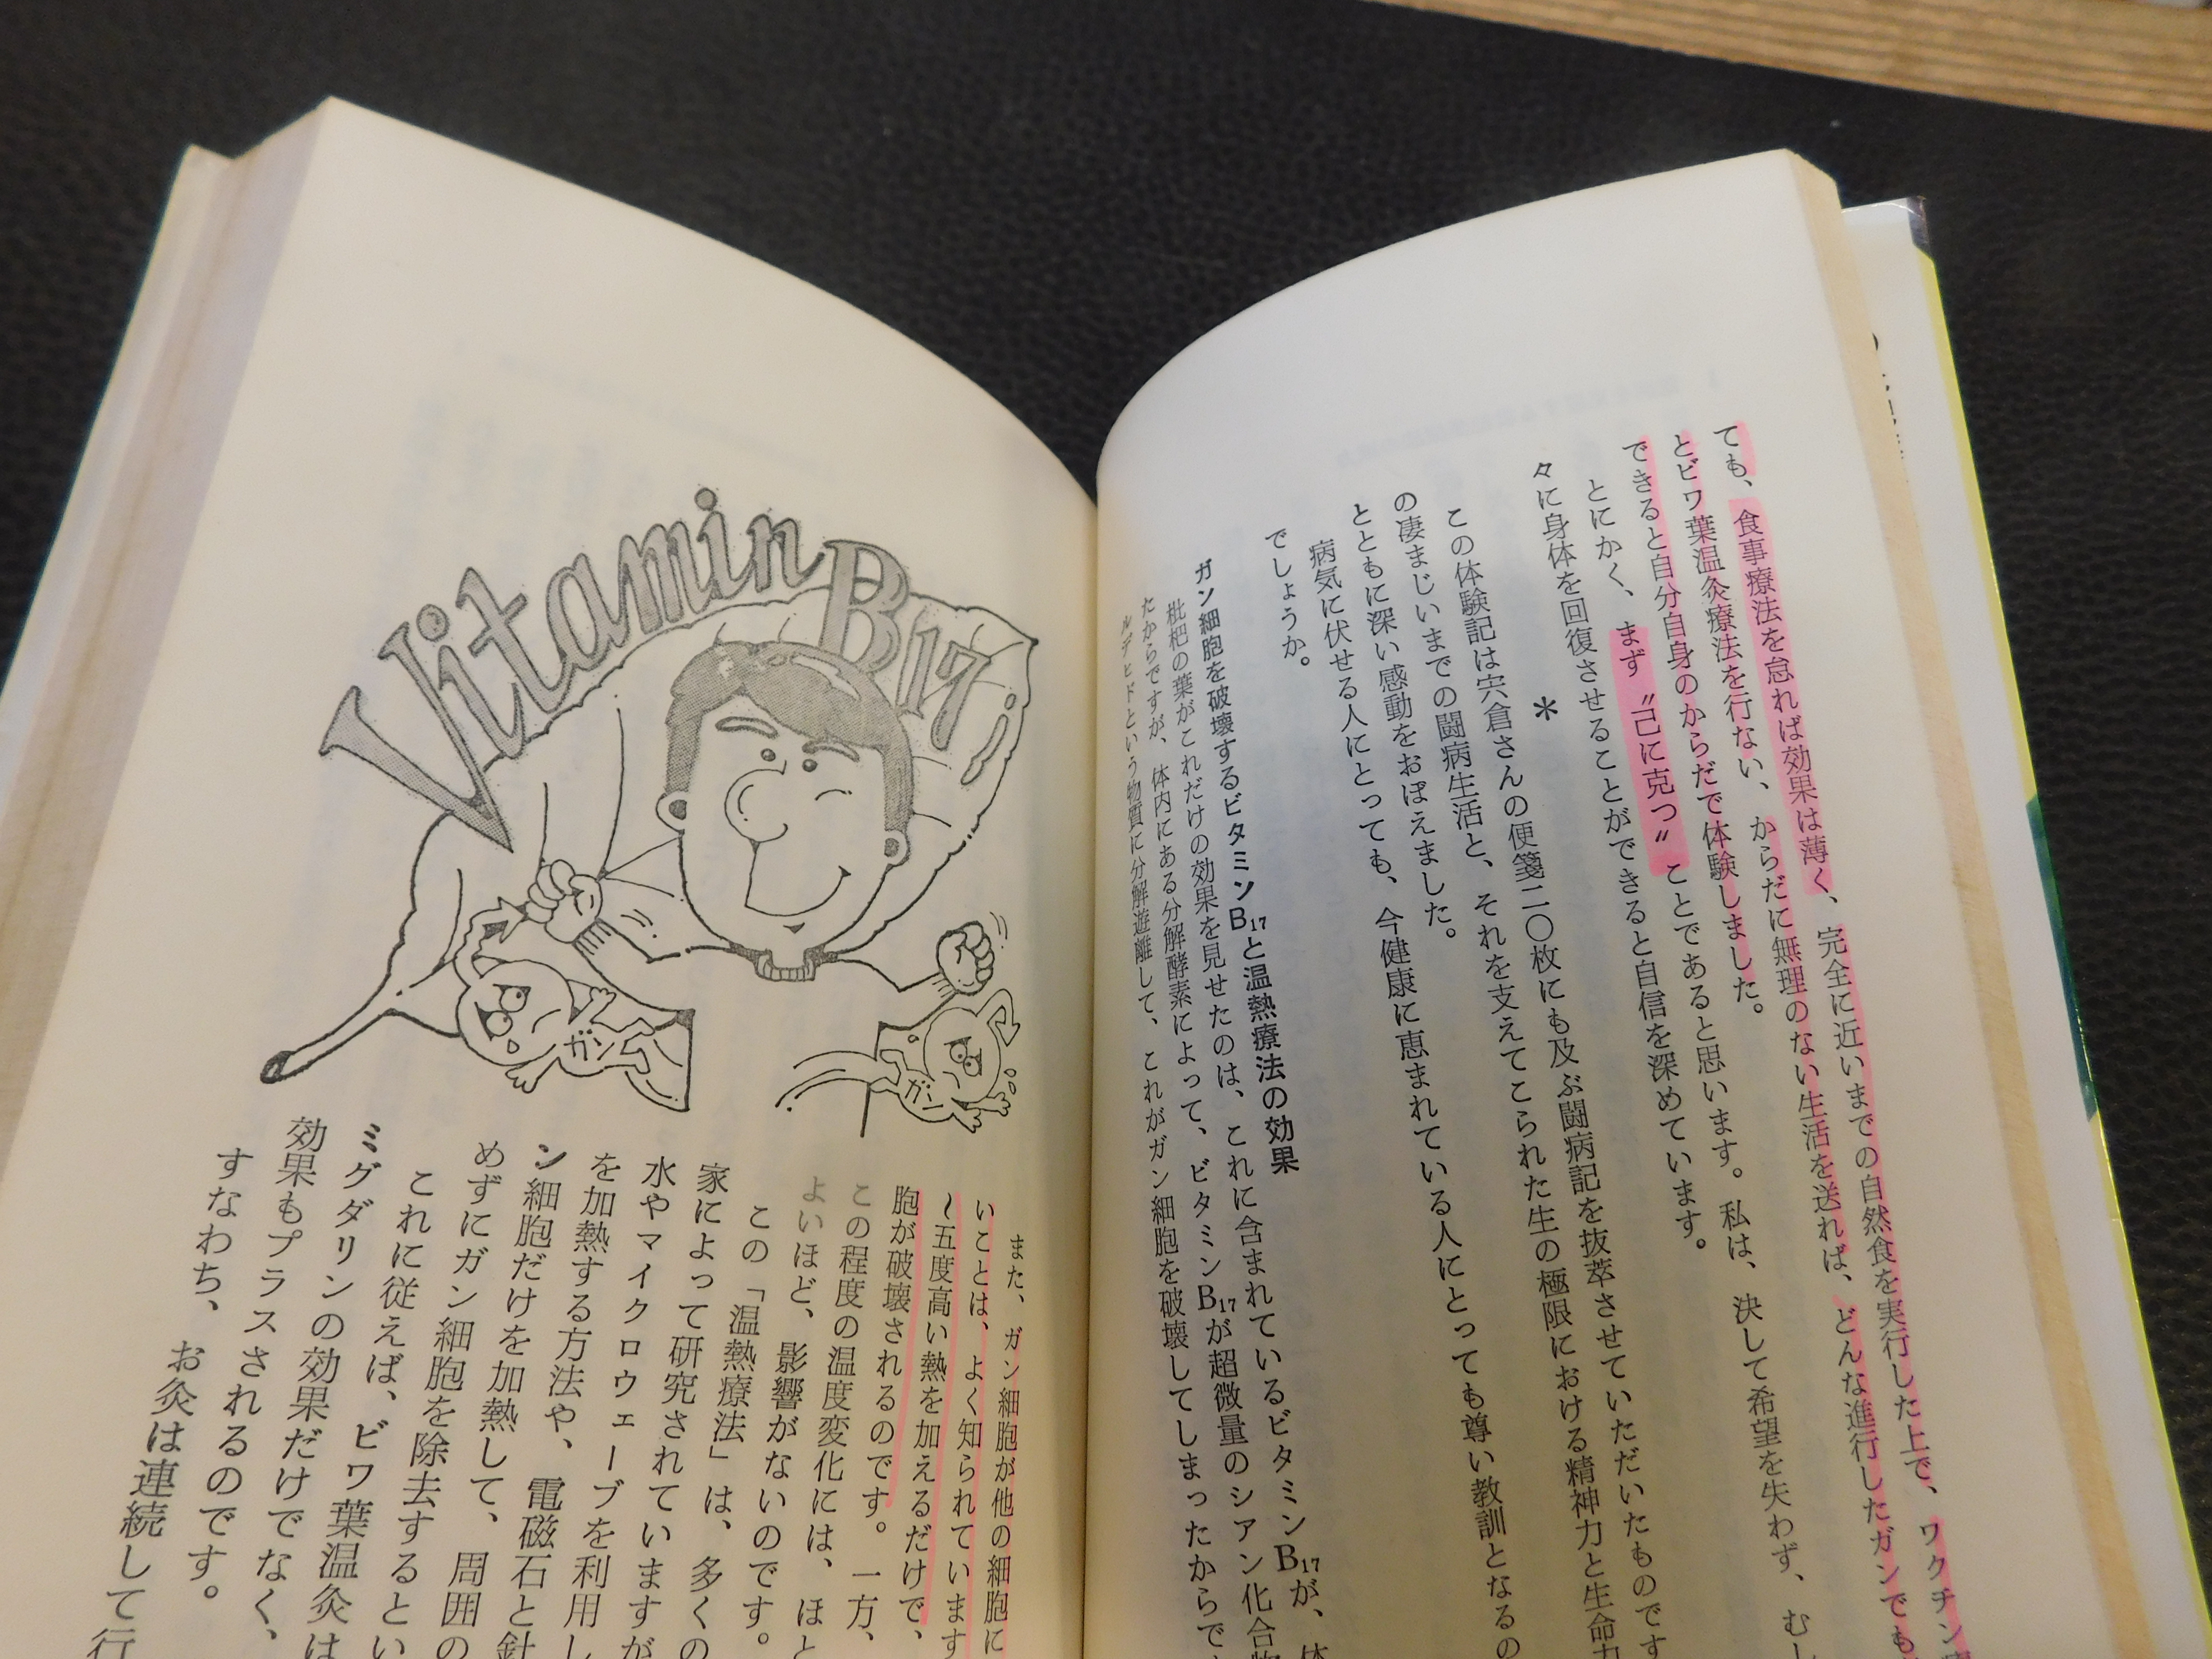 ても、食事療法を怠れば効果は薄く、完全に近いまでの自然食を実行した上で、ワクチン
とビワ葉温灸療法を行ない、からだに無理のない生活を送れば、どんな進行したガンでも
できると自分自身のからだで体験しました。
とにかく、まず〝己に克つ〟ことであると思います。私は、決して希望を失わず、むし
々に身体を回復させることができると自信を深めています。
＊
この体験記は宍倉さんの便箋二〇枚にも及ぶ闘病記を抜萃させていただいたものです
の凄まじいまでの闘病生活と、それを支えてこられた生の極限における精神力と生命力
とともに深い感動をおぼえました。
病気に伏せる人にとっても、今健康に恵まれている人にとっても尊い教訓となるの
でしょうか。
ガン細胞を破壊するビタミンB17と温熱療法の効果
枇杷の葉がこれだけの効果を見せたのは、これに含まれているビタミンB17が、体
たからですが、体内にある分解酵素によって、ビタミンB17が超微量のシアン化合物
ルデヒドという物質に分解遊離して、これがガン細胞を破壊してしまったからで
Vitamin B17
ガン
ガン
また、ガン細胞が他の細胞に
いことは、よく知られています
～五度高い熱を加えるだけで、
胞が破壊されるのです。一方、
この程度の温度変化には、ほと
よいほど、影響がないのです。
この「温熱療法」は、多くの
家によって研究されていますが
水やマイクロウェーブを利用し
を加熱する方法や、電磁石と針
ン細胞だけを加熱して、周囲の
めずにガン細胞を除去するとい
これに従えば、ビワ葉温灸は
ミグダリンの効果だけでなく、
効果もプラスされるのです。
すなわち、お灸は連続して行